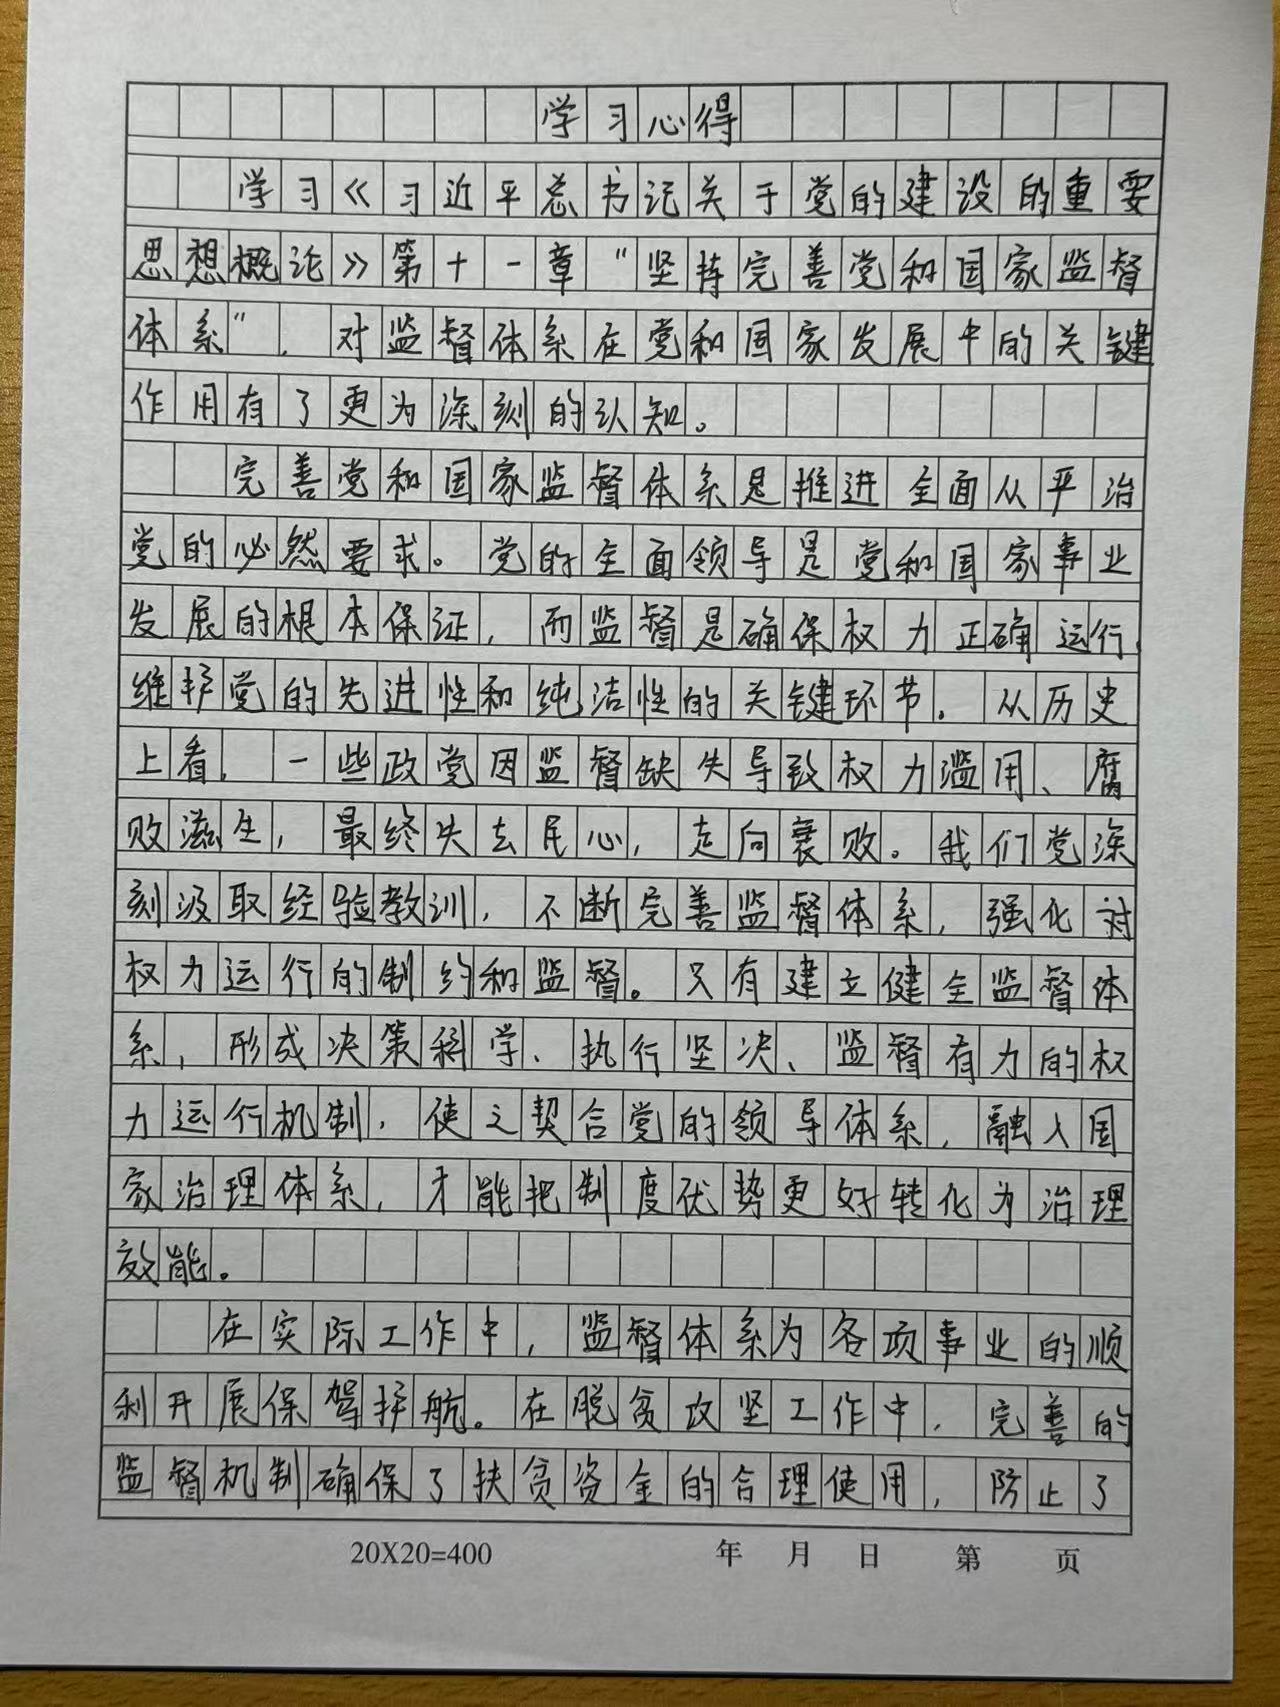 学习心得
学习《习近平总书记关于党的建设的重要
思想概论》第十一章“坚持完善党和国家监督
体系”，对监督体系在党和国家发展中的关键
作用有了更为深刻的认知。
完善党和国家监督体系是推进全面从严治
党的必然要求。党的全面领导是党和国家事业
发展的根本保证，而监督是确保权力正确运行，
维护党的先进性和纯洁性的关键环节。从历史
上看，一些政党因监督缺失导致权力滥用、腐
败滋生，最终失去民心，走向衰败。我们党深
刻汲取经验教训，不断完善监督体系，强化对
权力运行的制约和监督。只有建立健全监督体
系，形成决策科学、执行坚决、监督有力的权
力运行机制，使之契合党的领导体系，融入国
家治理体系，才能把制度优势更好转化为治理
效能。
在实际工作中，监督体系为各项事业的顺
利开展保驾护航。在脱贫攻坚工作中，完善的
监督机制确保了扶贫资金的合理使用，防止了
20X20=400 年 月 日 第 页